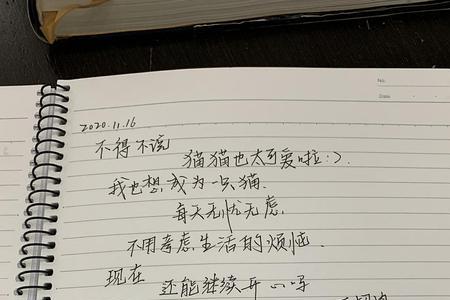 No.
Date
2020.11.16
不得不说
猫猫也太可爱啦:)
我也想成为一只猫.
每天无忧无虑.
不用考虑生活的烦恼.
现在
还能继续开心吗